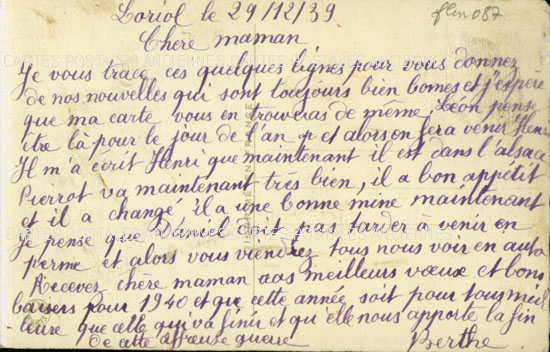 Loriol le 29/12/39
flm 087
Chère maman
Je vous trace ces quelques lignes pour vous donnez
de nos nouvelles qui sont toujours bien bonnes et j'espère
que ma carte vous en trouveras de même. Léon pense
être là pour le jour de l'an et alors on fera venir Henri
Il m'a écrit Henri que maintenant il est dans l'alsace
Pierrot va maintenant très bien, il a bon appétit
et il a changé il a une bonne mine maintenant
Je pense que Daniel doit pas tarder à venir en
perme et alors vous viendrez tous nous voir en auto
Recevez chère maman nos meilleurs vœux et bons
baisers pour 1940 et que cette année soit pour tous meil
leure que celle qui va finir et qu'elle nous apporte la fin
de cette affreuse guerre
Berthe.
CARTES POSTALES ANCIENNES